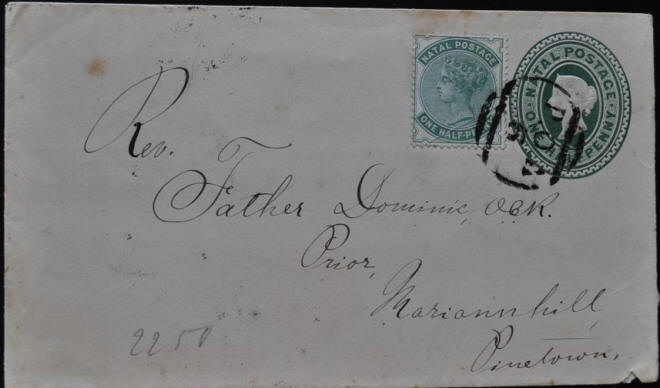 NATAL POSTAGE
ONE HALF-PENNY
NATAL POSTAGE
ONE HALF-PENNY
P O
Rev.
Father Dominic, OCR.
Prior,
Mariannhill,
Pinetown,
2250